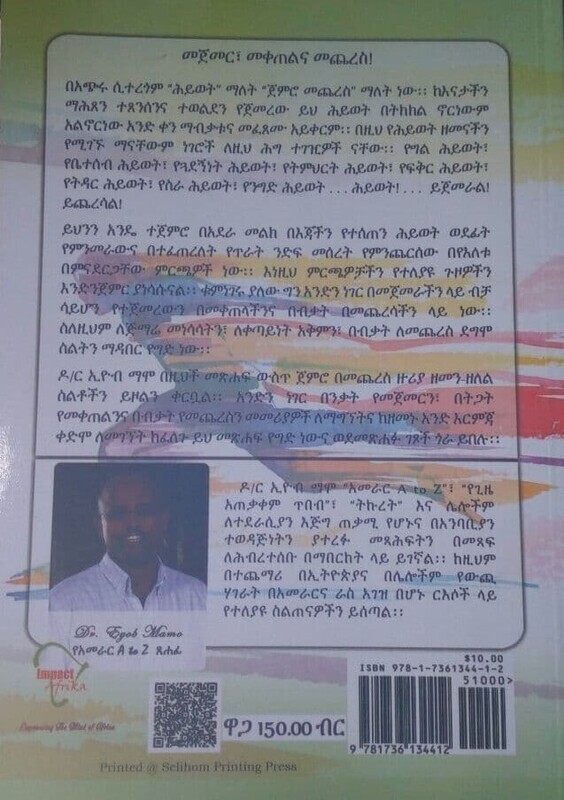 መጀመር፣ መቀጠልና መጨረስ!
በአጭሩ ሲተረጎም “ሕይወት” ማለት “ጀምሮ መጨረስ” ማለት ነው፡፡ ከእናታችን
ማሕጸን ተጸንሰንና ተወልደን የጀመረው ይህ ሕይወት በትክክል ኖርነውም
አልኖርነው አንድ ቀን ማብቃቱና መፈጸሙ አይቀርም፡፡ በዚህ የሕይወት ዘመናችን
የሚገኙ ማናቸውም ነገሮች ለዚህ ሕግ ተገዢዎች ናቸው፡፡ የግል ሕይወት፣
የቤተሰብ ሕይወት፣ የጓደኝነት ሕይወት፣ የትምህርት ሕይወት፣ የፍቅር ሕይወት፣
የትዳር ሕይወት፣ የስራ ሕይወት፣ የንግድ ሕይወት . . . ሕይወት! . . . ይጀመራል!
ይጨረሳል!
ይህንን አንዴ ተጀምሮ በአደራ መልክ በእጃችን የተሰጠን ሕይወት ወደፊት
የምንመራውና በተፈጠረለት የጥራት ንድፍ መሰረት የምንጨርሰው በየእለቱ
በምናደርጋቸው ምርጫዎች ነው፡፡ እነዚህ ምርጫዎቻችን የተለያዩ ጉዞዎችን
እንድንጀምር ያነሳሱናል፡፡ ቁምነገሩ ያለው ግን አንድን ነገር በመጀመራችን ላይ ብቻ
ሳይሆን የተጀመረውን በመቀጠላችንና በብቃት በመጨረሳችን ላይ ነው፡፡
ስለዚህም ለጅማሬ መነሳሳትን፣ ለቀጣይነት አቅምን፣ በብቃት ለመጨረስ ደግሞ
ስልትን ማዳበር የግድ ነው፡፡
ዶ/ር ኢዮብ ማሞ በዚህች መጽሐፍ ውስጥ ጀምሮ በመጨረስ ዙሪያ ዘመን-ዘለል
ስልቶችን ይዞልን ቀርቧል፡፡ አንድን ነገር በንቃት የመጀመርን፣ በትጋት
የመቀጠልንና በብቃት የመጨረስን መመሪያዎች ለማግኘትና ከዘመኑ አንድ እርምጃ
ቀድሞ ለመገኘት ከፈለጉ ይህ መጽሐፍ የግድ ነውና ወደመጽሐፉ ገጾች ጎራ ይበሉ፡፡
ዶ/ር ኢዮብ ማሞ “አመራር A to Z”፣ “የጊዜ
አጠቃቀም ጥበብ”፣ “ትኩረት” እና ሌሎችም
ለተደራሲያን እጅግ ጠቃሚ የሆኑና በአንባቢያን
ተወዳጅነትን ያተረፉ መጻሕፍትን በመጻፍ
ለሕብረተሰቡ በማበርከት ላይ ይገኛል፡፡ ከዚህም
በተጨማሪ በኢትዮጵያና በሌሎችም የውጪ
ሃገራት በአመራርና ራስ አገዝ በሆኑ ርእሶች ላይ
የተለያዩ ስልጠናዎችን ይሰጣል፡፡
Dr. Eyob Mamo
የአመራር A to Z ጸሐፊ
Impact
Afrika
Empowering The Mind of Africa
ዋጋ 150.00 ብር
$10.00
ISBN 978-1-7361344-1-2
51000>
9 781736 134412
Printed @ Selihom Printing Press